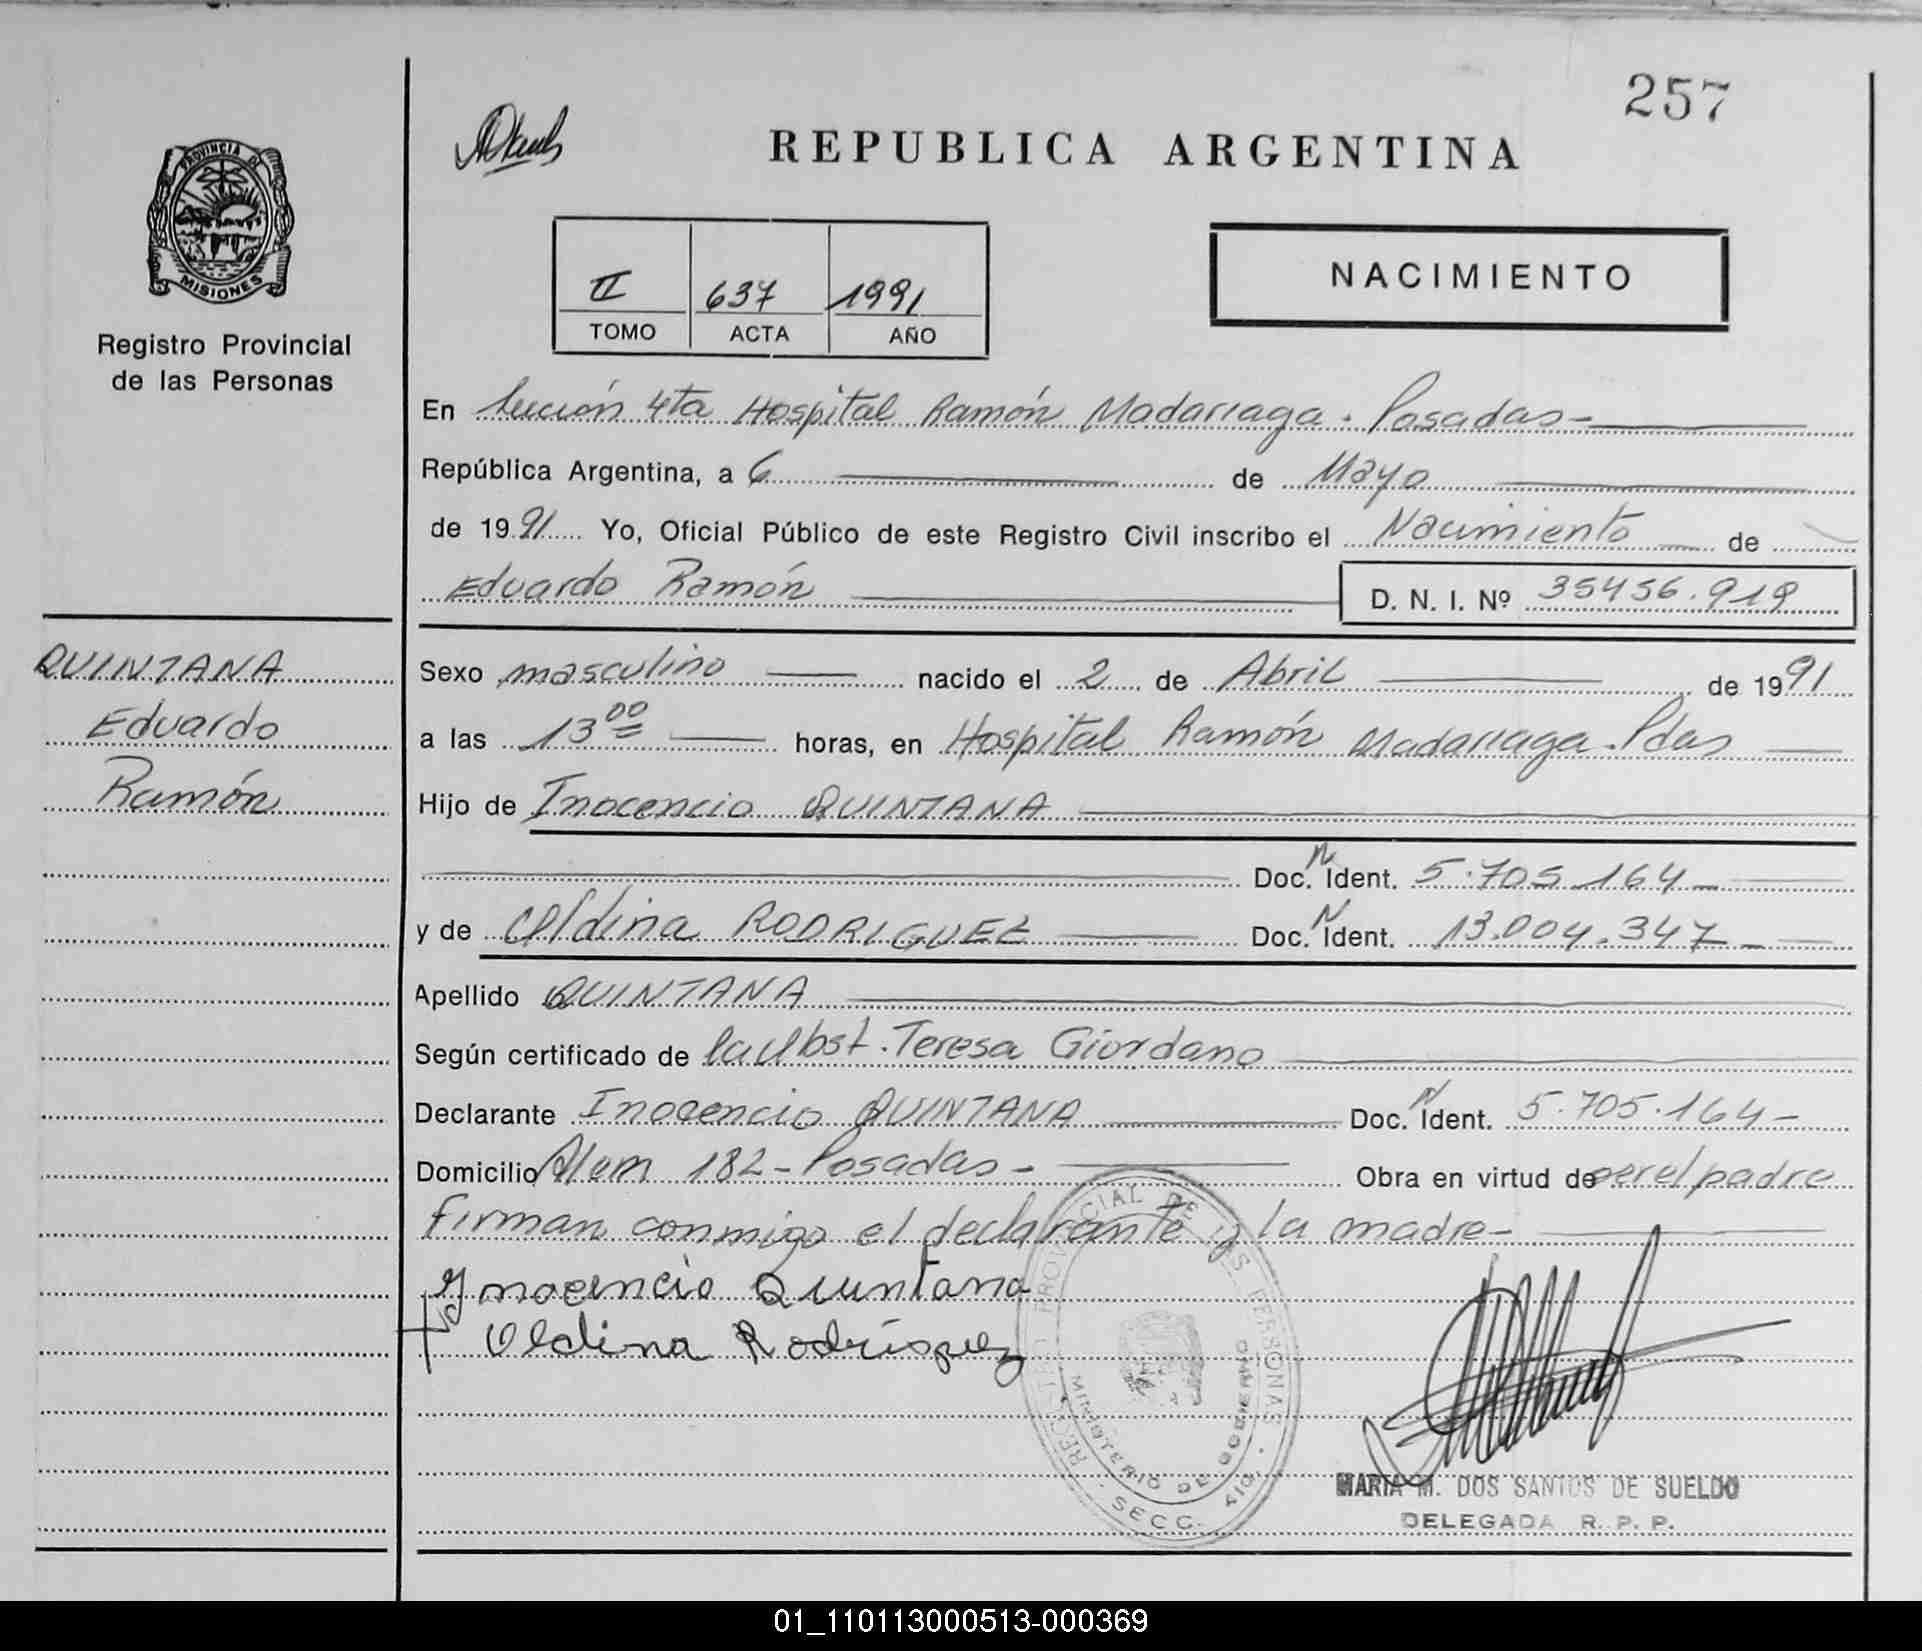 257
REPUBLICA ARGENTINA
PROVINCIA DE
MISIONES
Registro Provincial
de las Personas
II 637 1991
TOMO ACTA AÑO
NACIMIENTO
En Sección 4ta Hospital Ramón Madariaga. Posadas-
República Argentina, a 6 de Mayo
de 1991 Yo, Oficial Público de este Registro Civil inscribo el Nacimiento de
Eduardo Ramón D. N. I. Nº 35456.919
QUINTANA
Eduardo
Ramón
Sexo masculino nacido el 2 de Abril de 1991
a las 13 00 horas, en Hospital Ramón Madariaga. Pdas
Hijo de Inocencio QUINTANA
Doc. N Ident. 5.705.164
y de Oldina RODRIGUEZ Doc. N Ident. 13.004.347
Apellido QUINTANA
Según certificado de la Obst. Teresa Giordano
Declarante Inocencio QUINTANA Doc. N Ident. 5.705.164-
Domicilio Alem 182-Posadas- Obra en virtud de ser el padre
firman conmigo el declarante y la madre-
Inocencio Quintana
Oldina Rodríguez
REGISTRO PROVINCIAL DE LAS PERSONAS
MINISTERIO DE GOBIERNO
SECC. 4ta.
MARIA M. DOS SANTOS DE SUELDO
DELEGADA R. P. P.
01_110113000513-000369